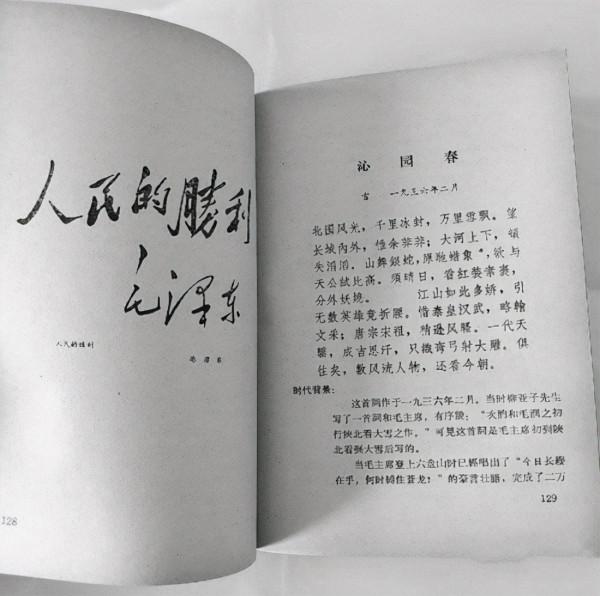 人民的勝利
毛泽东
人民的胜利
128
沁园春
一九三六年二月
北国风光，千里冰封，万里雪飘。望
长城内外，惟余莽莽；大河上下，顿
失滔滔。山舞银蛇，原驰蜡象*，欲与
天公试比高。须晴日，看红装素裹，
分外妖娆。 江山如此多娇，引
无数英雄竞折腰。惜秦皇汉武，略输
文采；唐宗宋祖，稍逊风骚。一代天
骄，成吉思汗，只识弯弓射大雕。俱
往矣，数风流人物，还看今朝。
时代背景：
这首词作于一九三六年二月。当时柳亚子先生
写了一首词和毛主席，有序谈：“次韵和毛润之初
行陕北看大雪之作。”可見这首词是毛主席初到陕
北看到大雪后写的。
当毛主席登上六盘山时已经唱出了“今日长缨
在手，何时缚住苍龙？”的豪言壮语，完成了二万
129